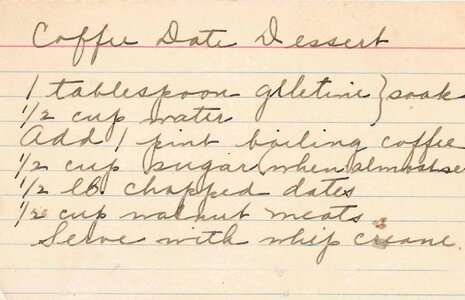 Coffee Date Dessert
1 tablespoon gelletine } soak
1/2 cup water
Add 1 pint boiling coffee
1/2 cup sugar (when almost se
1/2 lb chopped dates
1/2 cup walnut meats
Serve with whip creane.